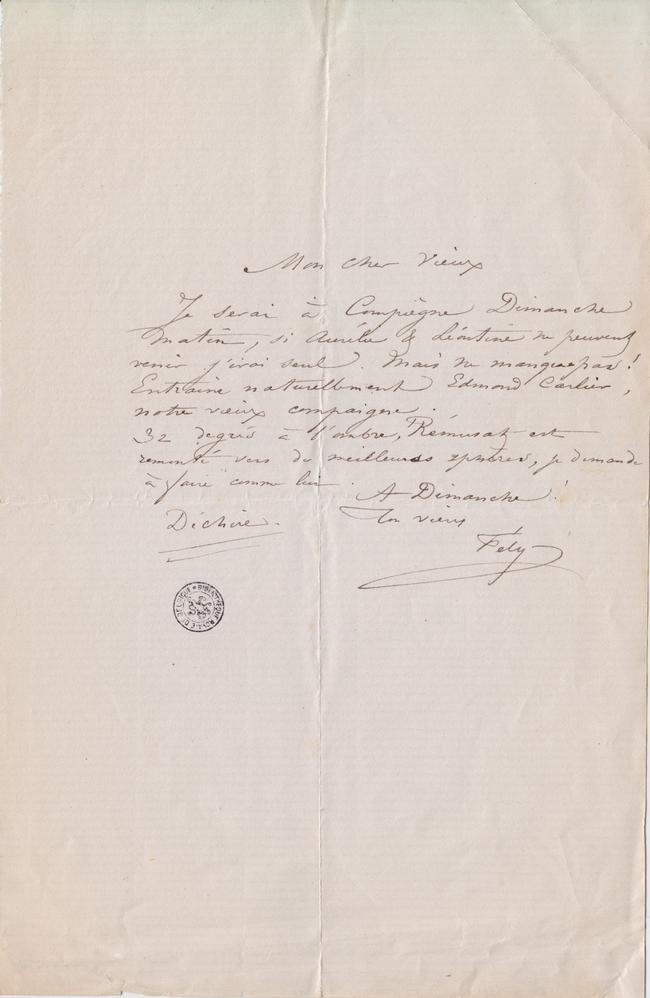 Mon cher Vieux
Je serai à Compiègne Dimanche
matin, si Aurélie & Léontine ne peuvent
venir j'irai seul. Mais ne manque pas !
Entraine naturellement Edmond Carlier,
notre vieux compaigne.
32 degrés à l'ombre, Rémusat est
remonté vers de meilleures sphères, je demande
à faire comme lui.
A Dimanche !
Déchire.
Ton vieux
Fély
BIBLIOTHEQUE ROYALE DE BELGIQUE